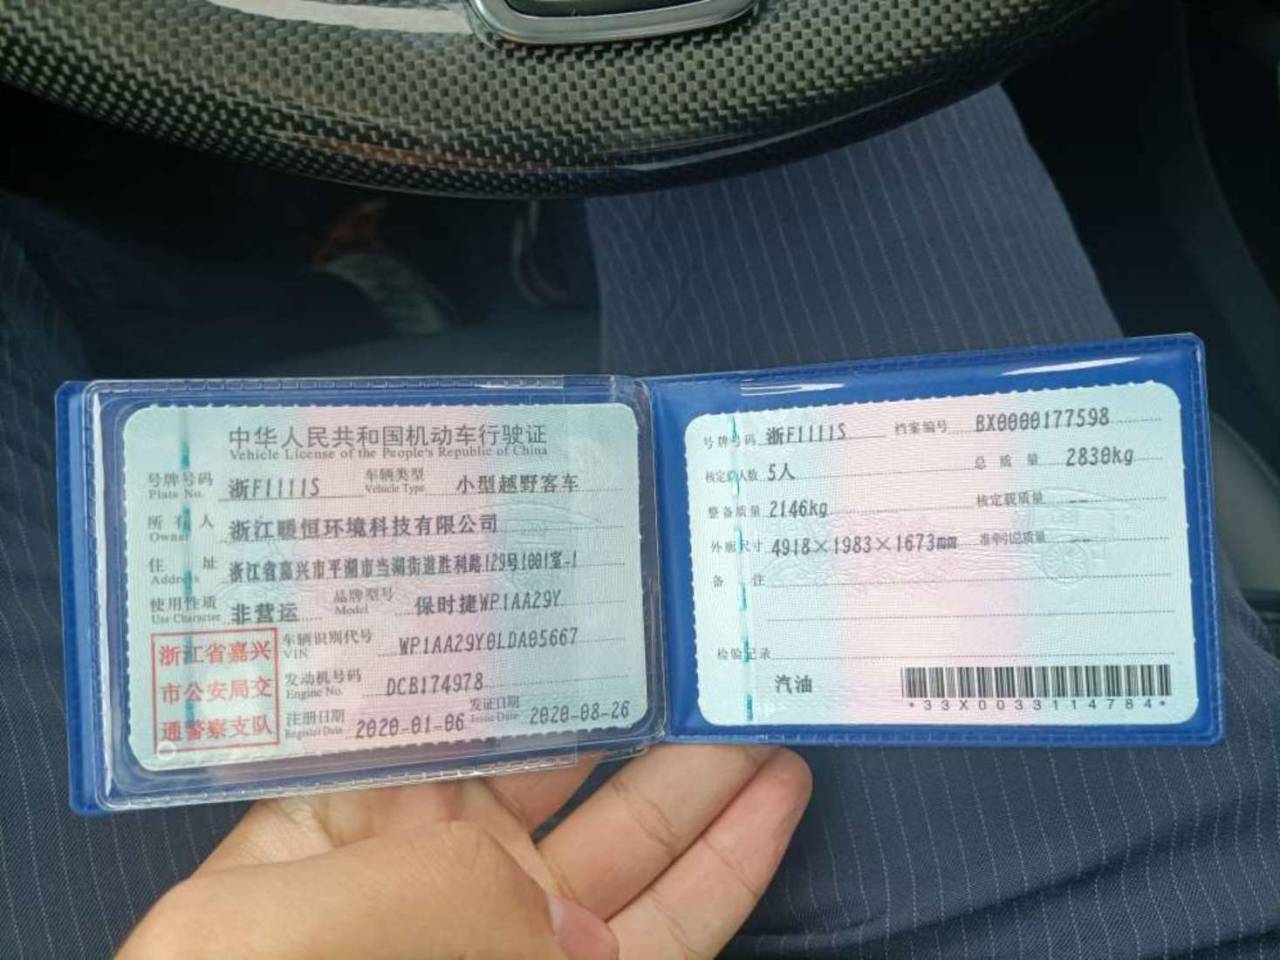 中华人民共和国机动车行驶证
Vehicle License of the People's Republic of China
号牌号码 浙F1111S 车辆类型 小型越野客车
Plate No. Vehicle Type
所有人 浙江暖恒环境科技有限公司
Owner
住址 浙江省嘉兴市平湖市当湖街道胜利路129号1001室-1
Address
使用性质 非营运 品牌型号 保时捷WP1AA29Y
Use Character Model
浙江省嘉兴
市公安局交
通警察支队
车辆识别代号 WP1AA29Y0LDA05667
VIN
发动机号码 DCB174978
Engine No.
注册日期 2020-01-06 发证日期 2020-08-26
Register Date Issue Date
号牌号码 浙F1111S 档案编号 BX0000177598
核定载人数 5人 总质量 2830kg
整备质量 2146kg 核定载质量 --
外廓尺寸 4918×1983×1673mm 准牵引总质量 --
备注
检验记录
汽油
*33X0033114784*